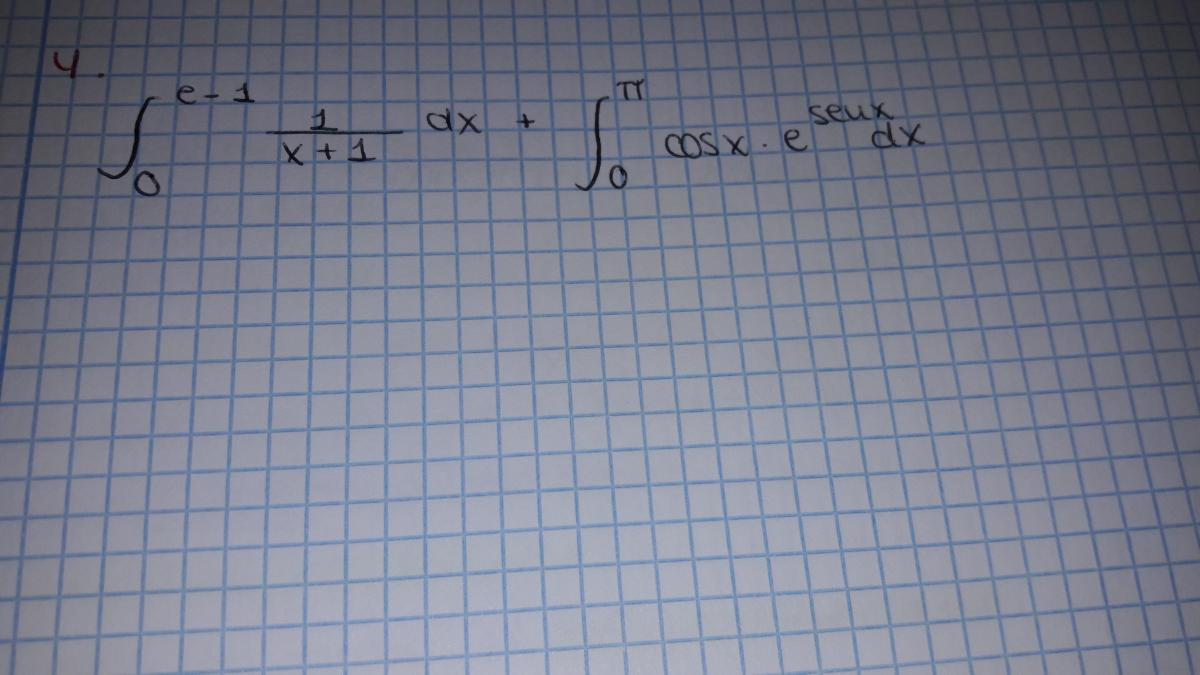 4.
∫₀^{e-1} 1/(x+1) dx + ∫₀^{π} cosx · e^{senx} dx